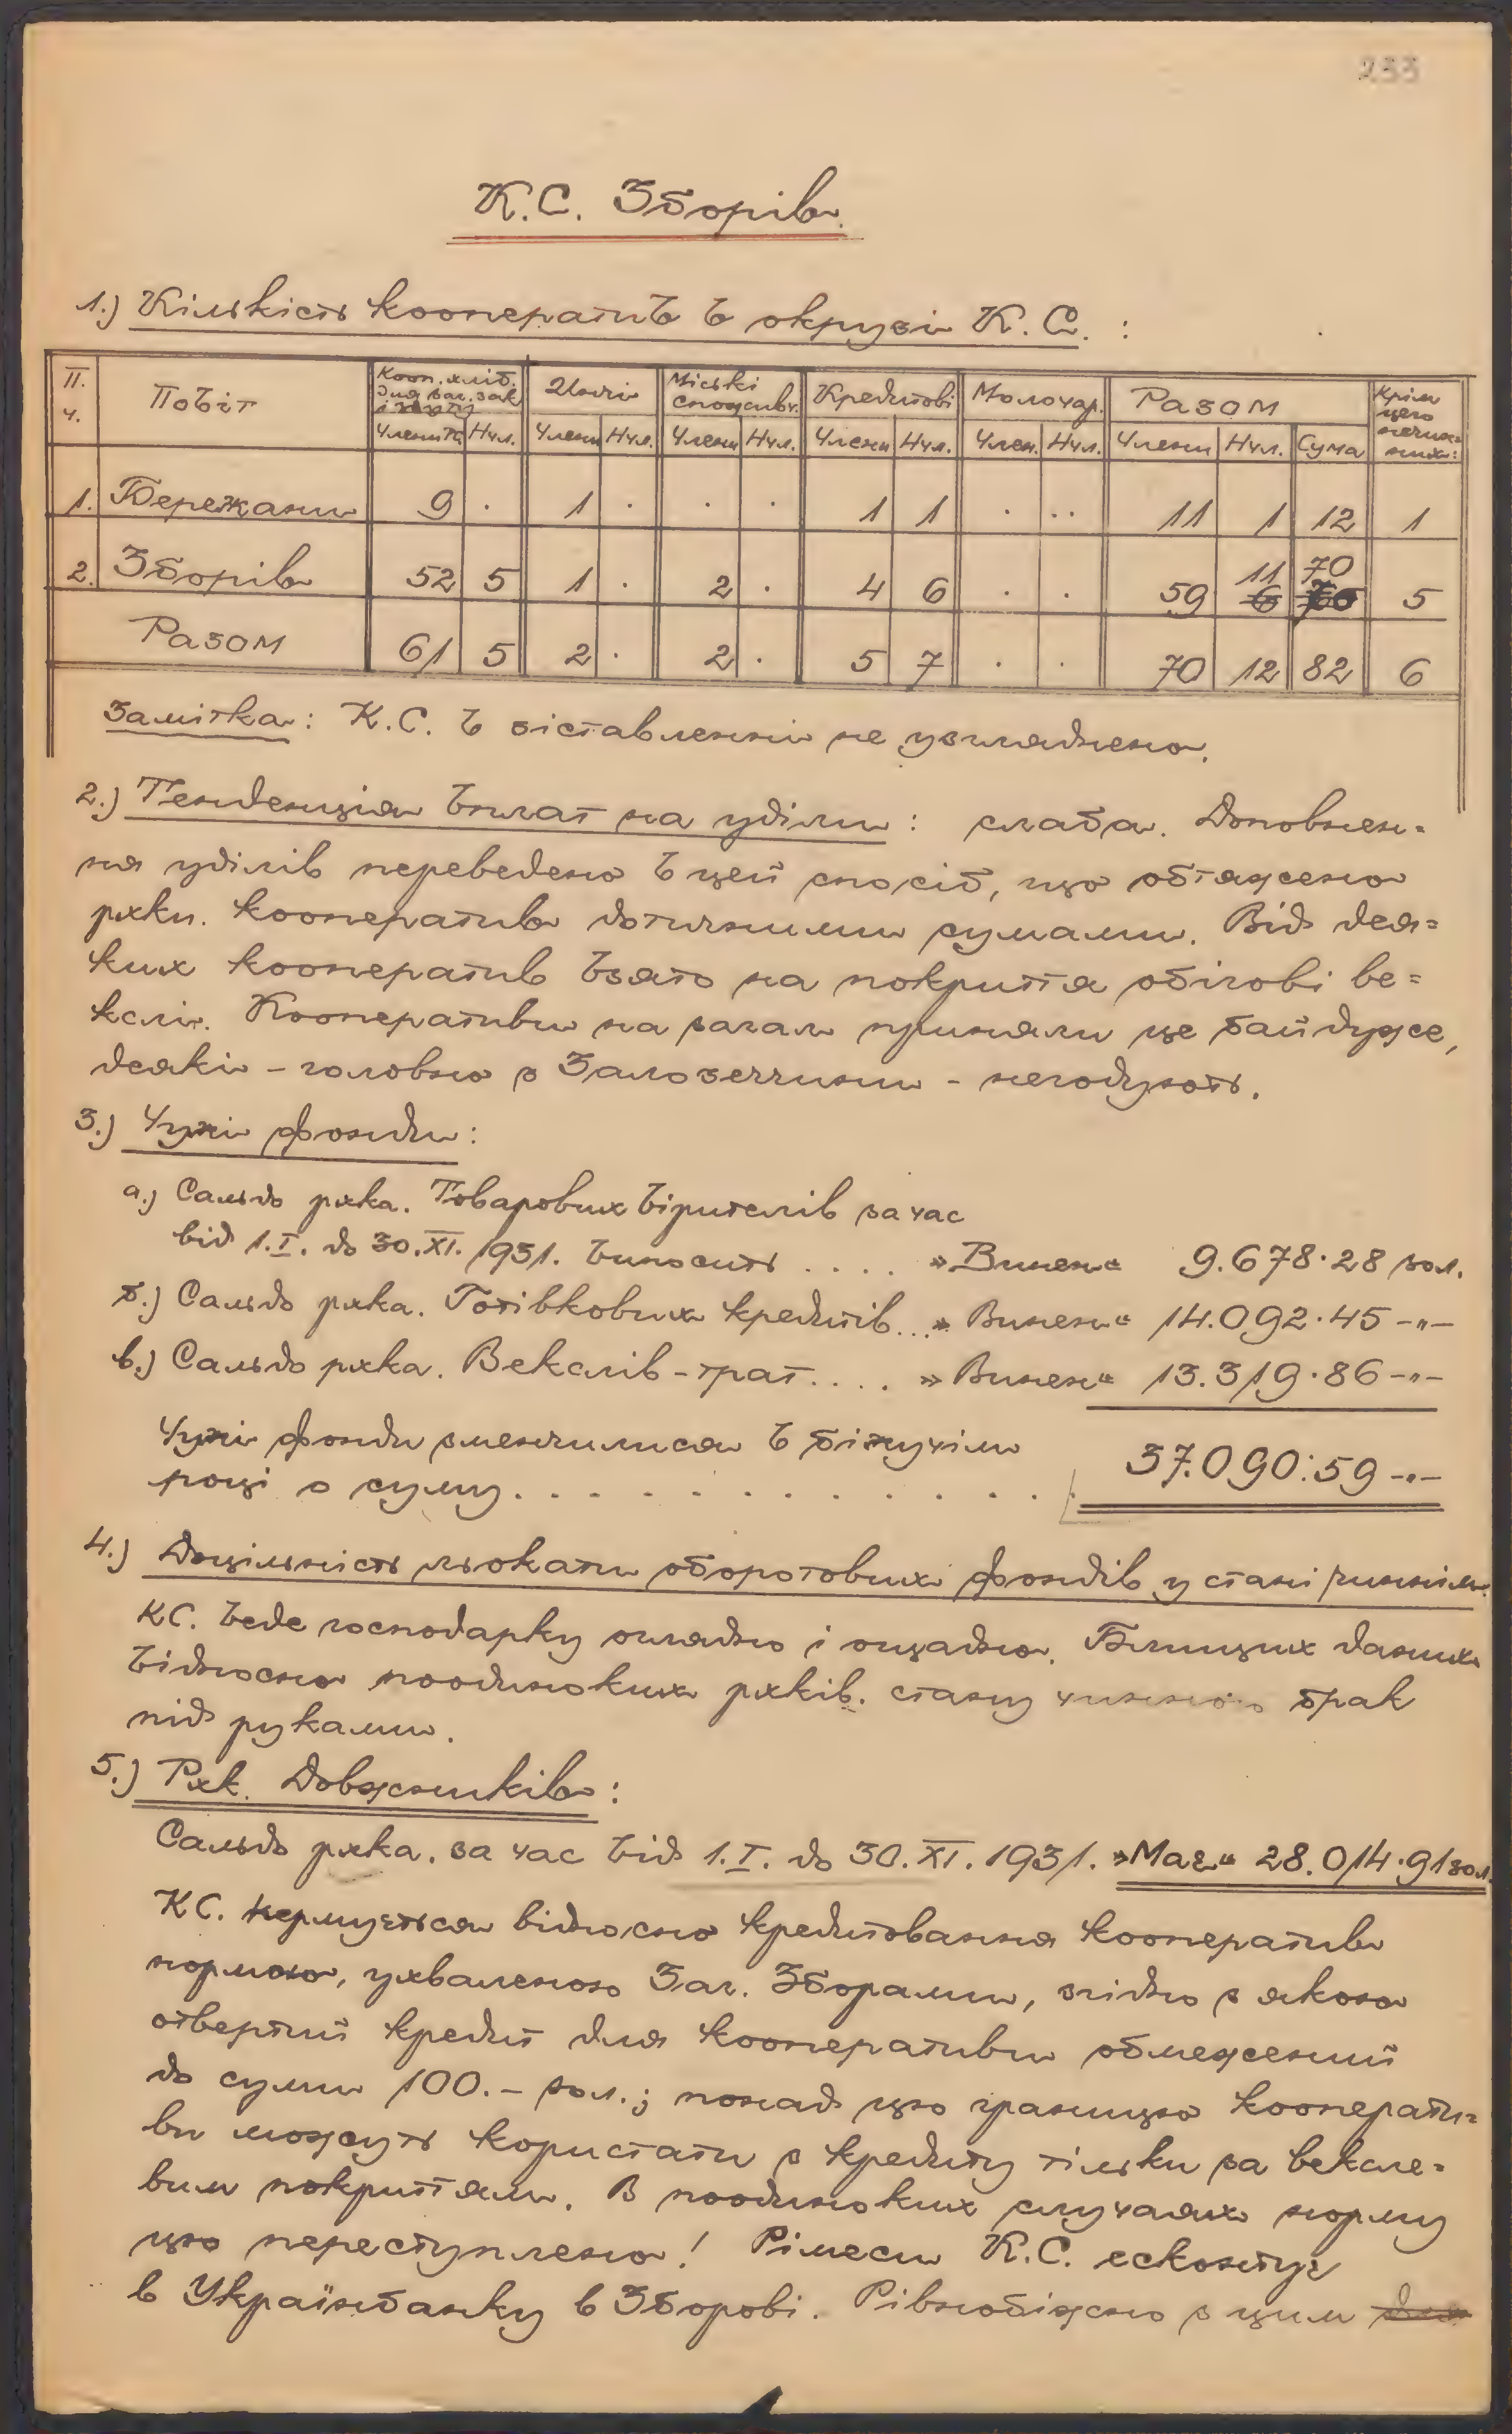 233
К.С. Зборів.
1.) Кількість кооператив в окрузі К.С. :
П. ч. | Повіт | Кооп. хліб. для заг. зак. і збуту | Инчі | Міські спожив. | Кредитові | Молочар. | Разом | Крім цего нечинних:
Члени | Нчл. | Члени | Нчл. | Члени | Нчл. | Члени | Нчл. | Член. | Нчл. | Члени | Нчл. | Сума
1. | Бережани | 9 | . | 1 | . | . | . | 1 | 1 | . | .. | 11 | 1 | 12 | 1
2. | Зборів | 52 | 5 | 1 | . | 2 | . | 4 | 6 | . | . | 59 | 11 6 | 70 | 5
Разом | 61 | 5 | 2 | . | 2 | . | 5 | 7 | . | . | 70 | 12 | 82 | 6
Замітка: К.С. в зіставленні не узгляднено.
2.) Тенденція вплат на уділи: слаба. Доповнен=
ня уділів переведено в цей спосіб, що обтяжено
рхки. кооператив дотичними сумами. Від дея=
ких кооператив взято на покриття обігові ве=
кслі. Кооперативи на загал приняли це байдуже,
деякі – головно з Залозеччини – негодують.
3.) Чужі фонди:
а.) Сальдо рхка. Товарових вірителів за час
від 1.I. до 30.XI. 1931. виносить . . . . „Винен“ 9.678·28 зол.
б.) Сальдо рхка. Готівкових кредитів... „Винен“ 14.092·45 –„–
в.) Сальдо рхка. Векслів-трат . . . . „Винен“ 13.319·86 –„–
Чужі фонди зменчилися в біжучім
році о суму . . . . . . . . . . . . . . . 37.090:59 –„–
4.) Доцільність льокати оборотових фондів у стані чиннім.
КС. веде господарку оглядно і ощадно. Близших даних
відносно поодиноких рхків. стану чинного брак
під руками.
5.) Рхк. Довжників:
Сальдо рхка. за час від 1.I. до 30.XI. 1931. „Має“ 28.014·91 зол.
КС. кермується відносно кредитовання кооператив
нормою, ухваленою Заг. Зборами, згідно з якою
отвертий кредит для кооперативи обмежений
до суми 100.– зол.; понад цю границю коопера­ти=
ви можуть користати з кредиту тільки за вексле=
вим покриттям. В поодиноких случаях норму
цю переступлено! Рімеси К.С. есконтує
в Українбанку в Зборові. Рівнобіжно з цим для